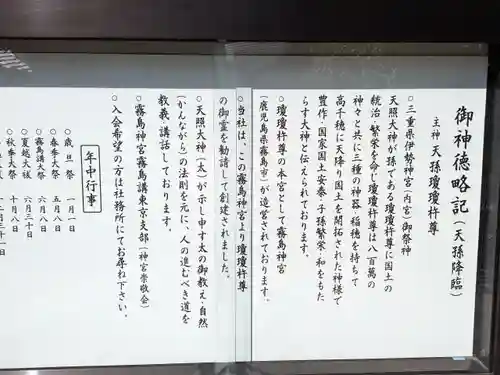 御神徳略記(天孫降臨)
主神 天孫瓊瓊杵尊
○三重県伊勢神宮(内宮)御祭神
天照大神が孫である瓊瓊杵尊に国土の
統治・繁栄を命じ瓊瓊杵尊は八百萬の
神々と共に三種の神器、稲穂を持ちて
高千穂に天降り国土を開拓された神様で
豊作・国家国土安泰・子孫繁栄・和をもた
らす大神と伝えられております。
○瓊瓊杵尊の本宮として霧島神宮
(鹿児島県霧島市)が造営されております。
○当社は、この霧島神宮より瓊瓊杵尊
の御霊を勧請して創建されました。
○天照大神(太)が示し申す太の御教え・自然
(かんながら)の法則を元に、人の進むべき道を
教義、講話しております。
○霧島神宮霧島講東京支部(神宮崇敬会)
○入会希望の方は社務所にてお尋ね下さい。
年中行事
○歳旦祭 一月一日
○春季大祭 五月八日
○霧島講大祭 六月二十日
○夏越大祓 六月三十日
○秋季大祭 十月八日